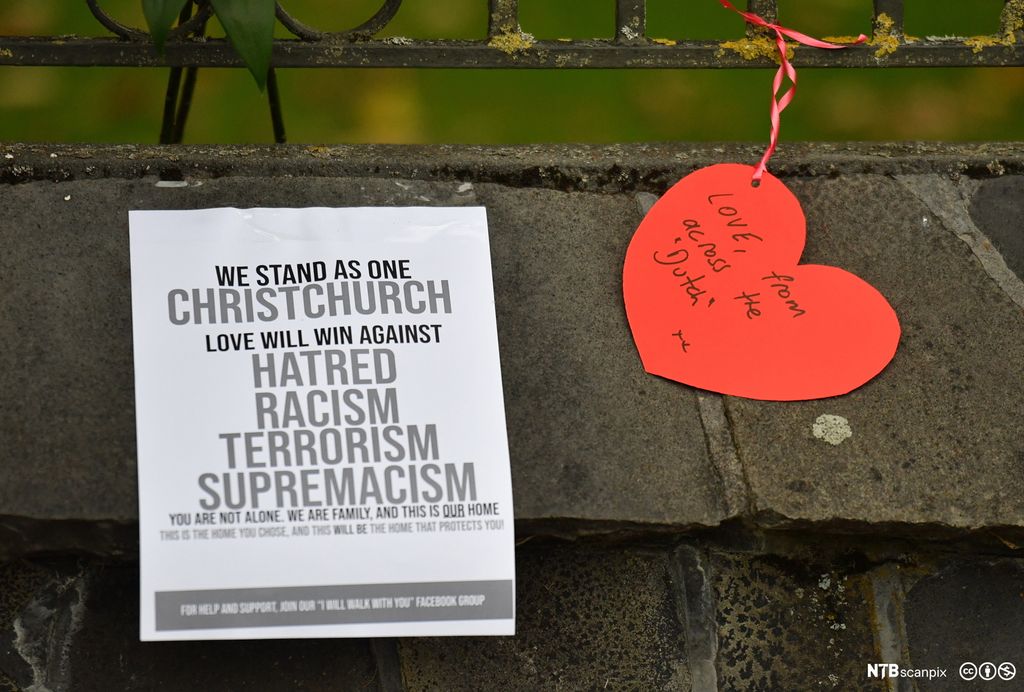 WE STAND AS ONE
CHRISTCHURCH
LOVE WILL WIN AGAINST
HATRED
RACISM
TERRORISM
SUPREMACISM
YOU ARE NOT ALONE. WE ARE FAMILY, AND THIS IS OUR HOME
THIS IS THE HOME YOU CHOSE, AND THIS WILL BE THE HOME THAT PROTECTS YOU!
FOR HELP AND SUPPORT, JOIN OUR "I WILL WALK WITH YOU" FACEBOOK GROUP
LOVE, from
across the
"Dutch"
xx
NTB scanpix
cc